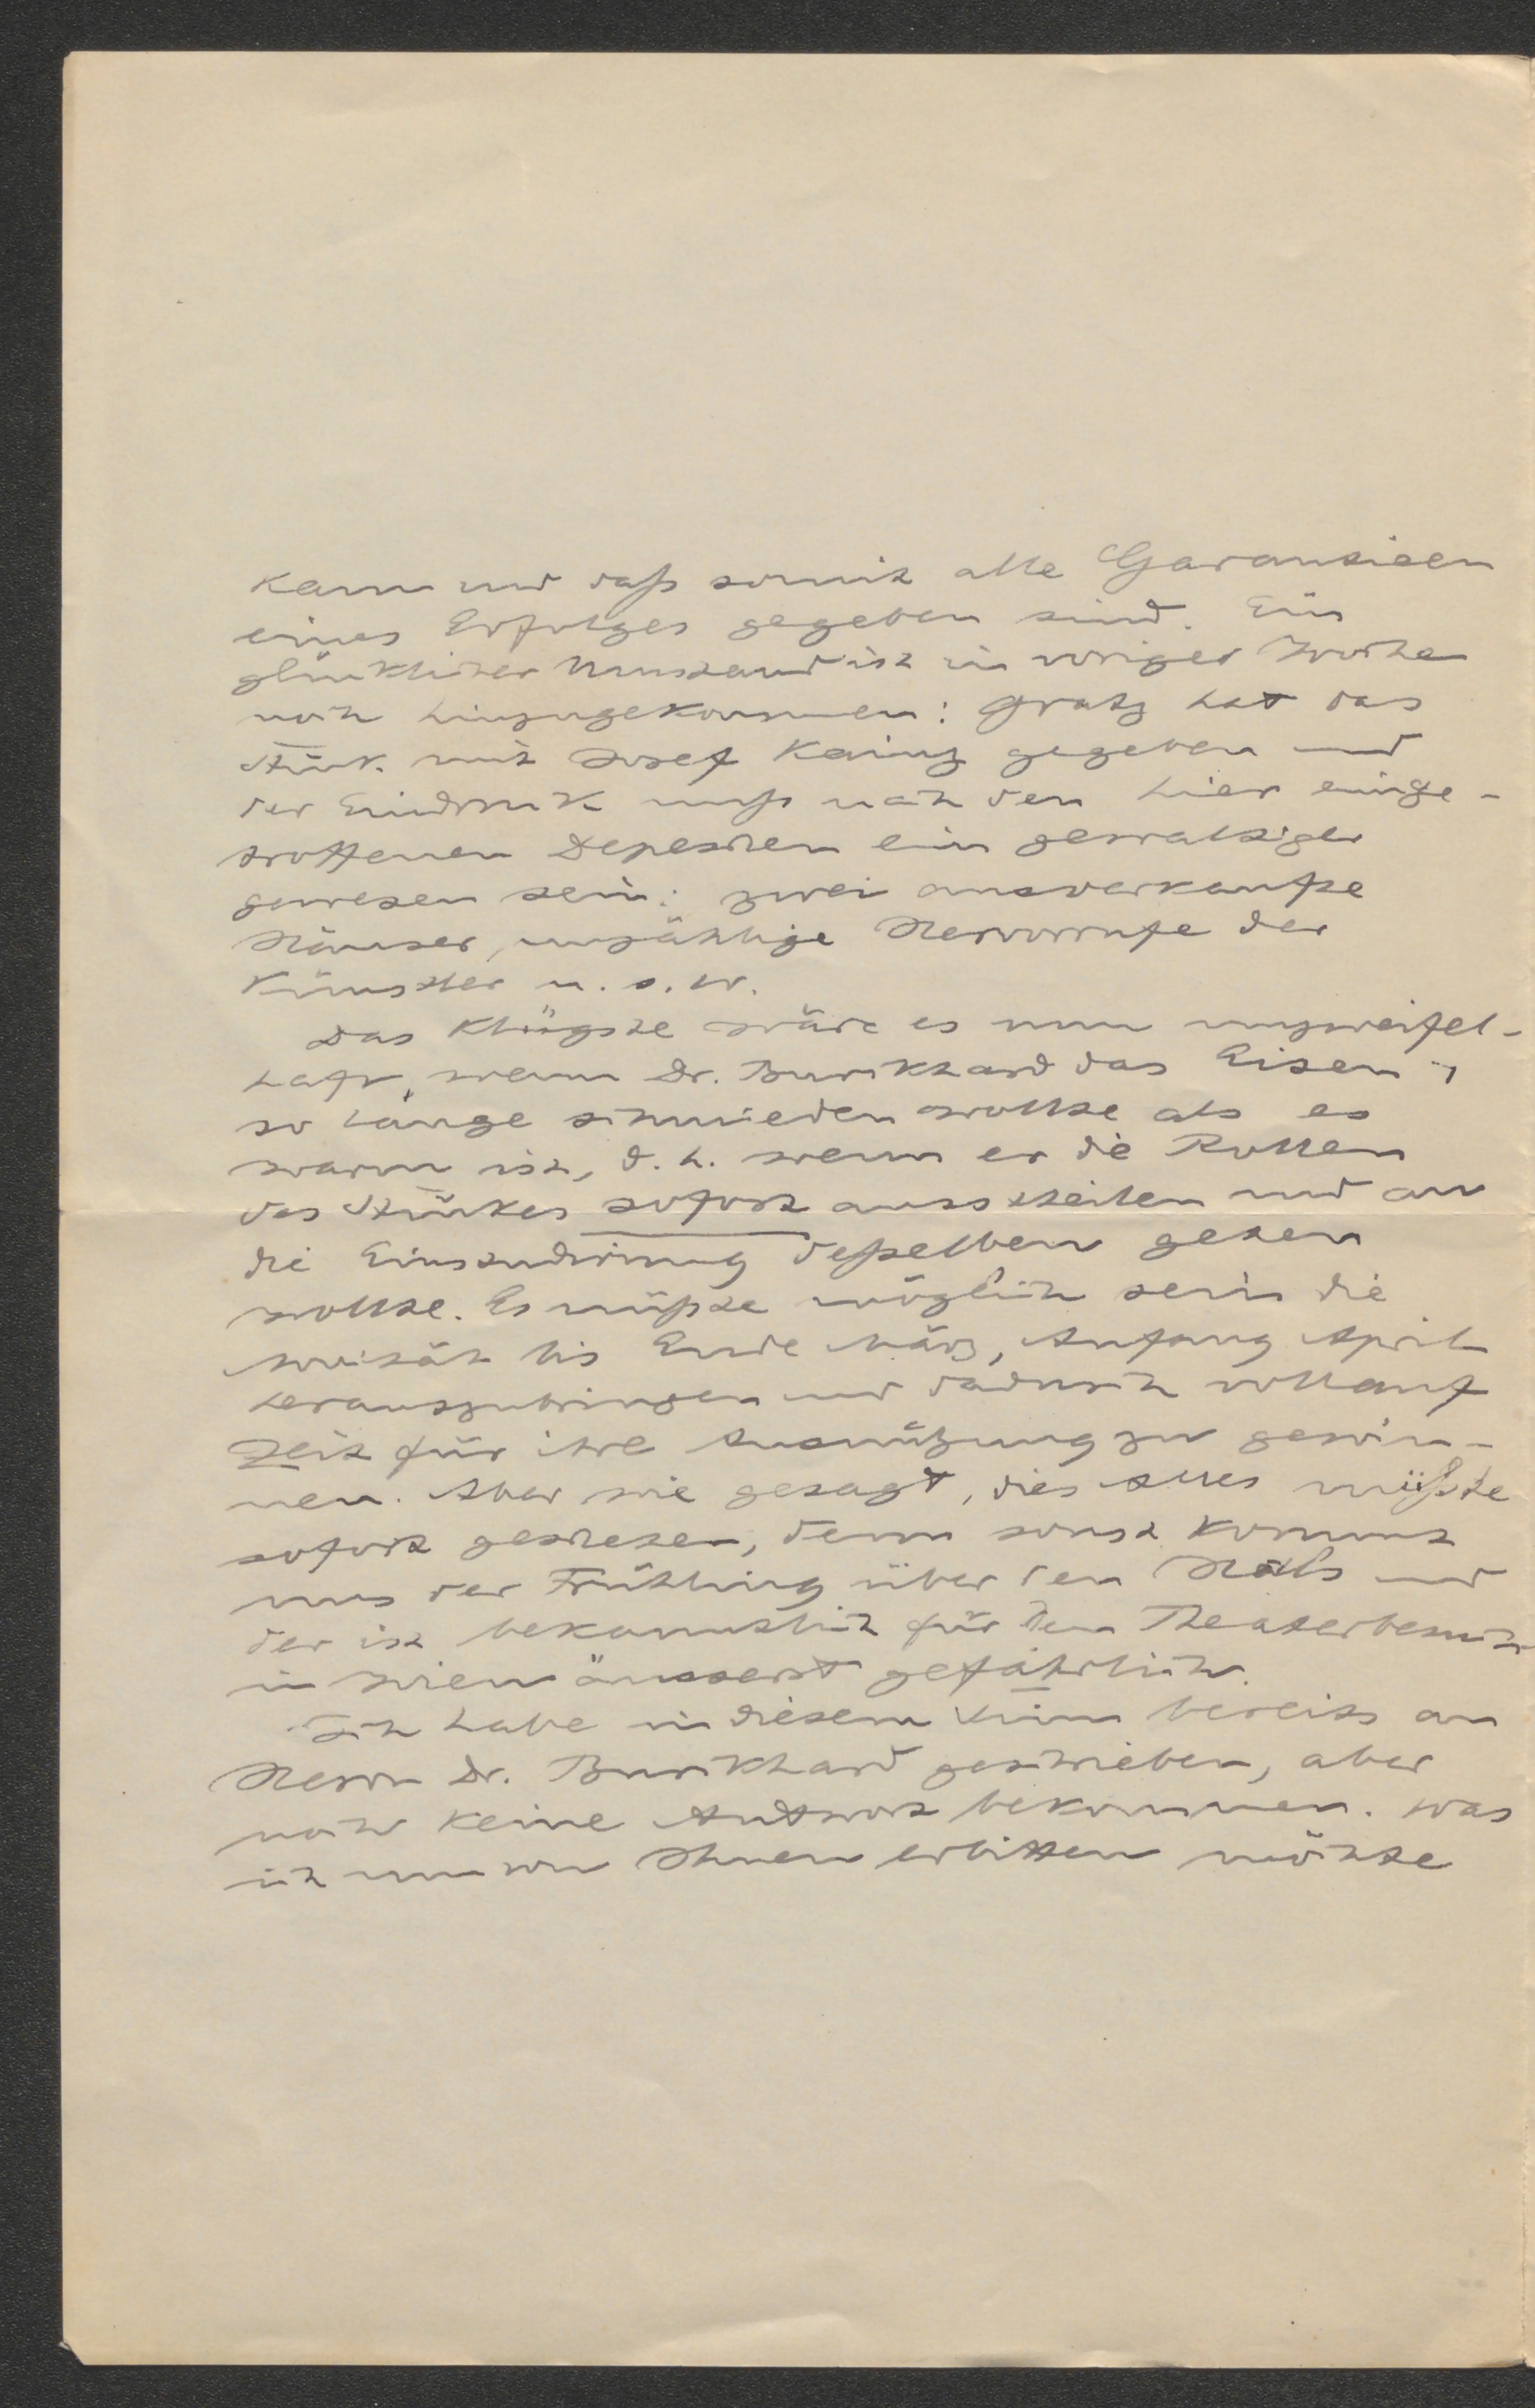 kann und daß somit alle Garantieen
eines Erfolges gegeben sind. Ein
glücklicher Umstand ist in voriger Woche
noch hinzugekommen: Gratz hat das
Stück mit Josef Kainz gegeben und
der Eindruck muß nach den hier einge-
troffenen Depeschen ein gewaltiger
gewesen sein: zwei ausverkaufte
Häuser, unzählige Hervorrufe der
Künstler u. s. w.
Das Klügste wäre es nun unzweifel-
haft, wenn Dr. Burckhard das Eisen
so lange schmieden wollte als es
warm ist, d. h. wenn er die Rollen
des Stückes sofort austheilen und an
die Einstudirung deßelben gehen
wollte. Es müßte möglich sein die
Novität bis Ende März, Anfang April
herauszubringen und dadurch vollauf
Zeit für ihre Ausnützung zu gewin-
nen. Aber wie gesagt, dies Alles müßte
sofort geschehen, denn sonst kommt
uns der Frühling über den Hals und
der ist bekanntlich für den Theaterbesuch
in Wien äusserst gefährlich.
Ich habe in diesem Sinn bereits an
Herrn Dr. Burckhard geschrieben, aber
noch keine Antwort bekommen. Was
ich nun von Ihnen erbitten möchte